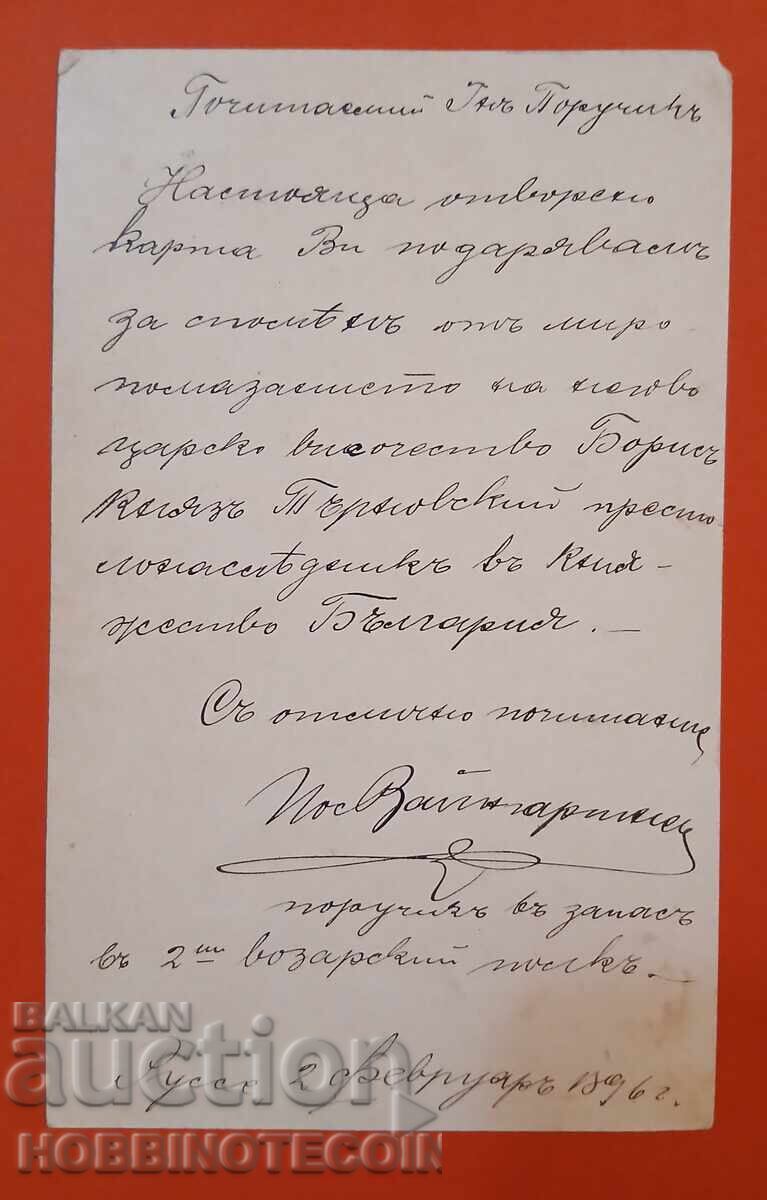 Почитаемий Гнъ Поручикъ
Настояща отворено
карта Ви подарявамъ
за споменъ отъ миро
помазанието на негово
царско височество Борисъ
Князъ Търновский престо
лонаследникъ въ Кня-
жество България. —
Съ отлично почитание
Вайнгартнер
поручикъ въ запасъ
въ 2ий возарский полкъ. —
Руссе 2 февруаръ 1896 г.
BALKAN
auction
HOBBINOTECOIN